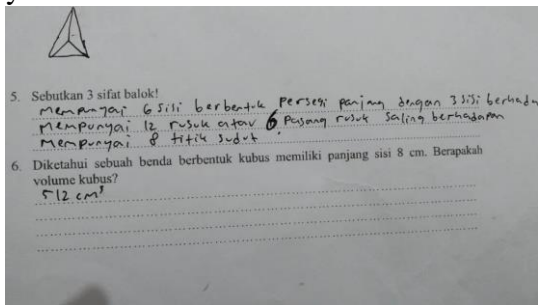 5. Sebutkan 3 sifat balok!
mempunyai 6 sisi berbentuk persegi panjang dengan 3 sisi berhada
mempunyai 12 rusuk atau 6 pasang rusuk saling berhadapan
mempunyai 8 titik sudut
6. Diketahui sebuah benda berbentuk kubus memiliki panjang sisi 8 cm. Berapakah
volume kubus?
512 cm³